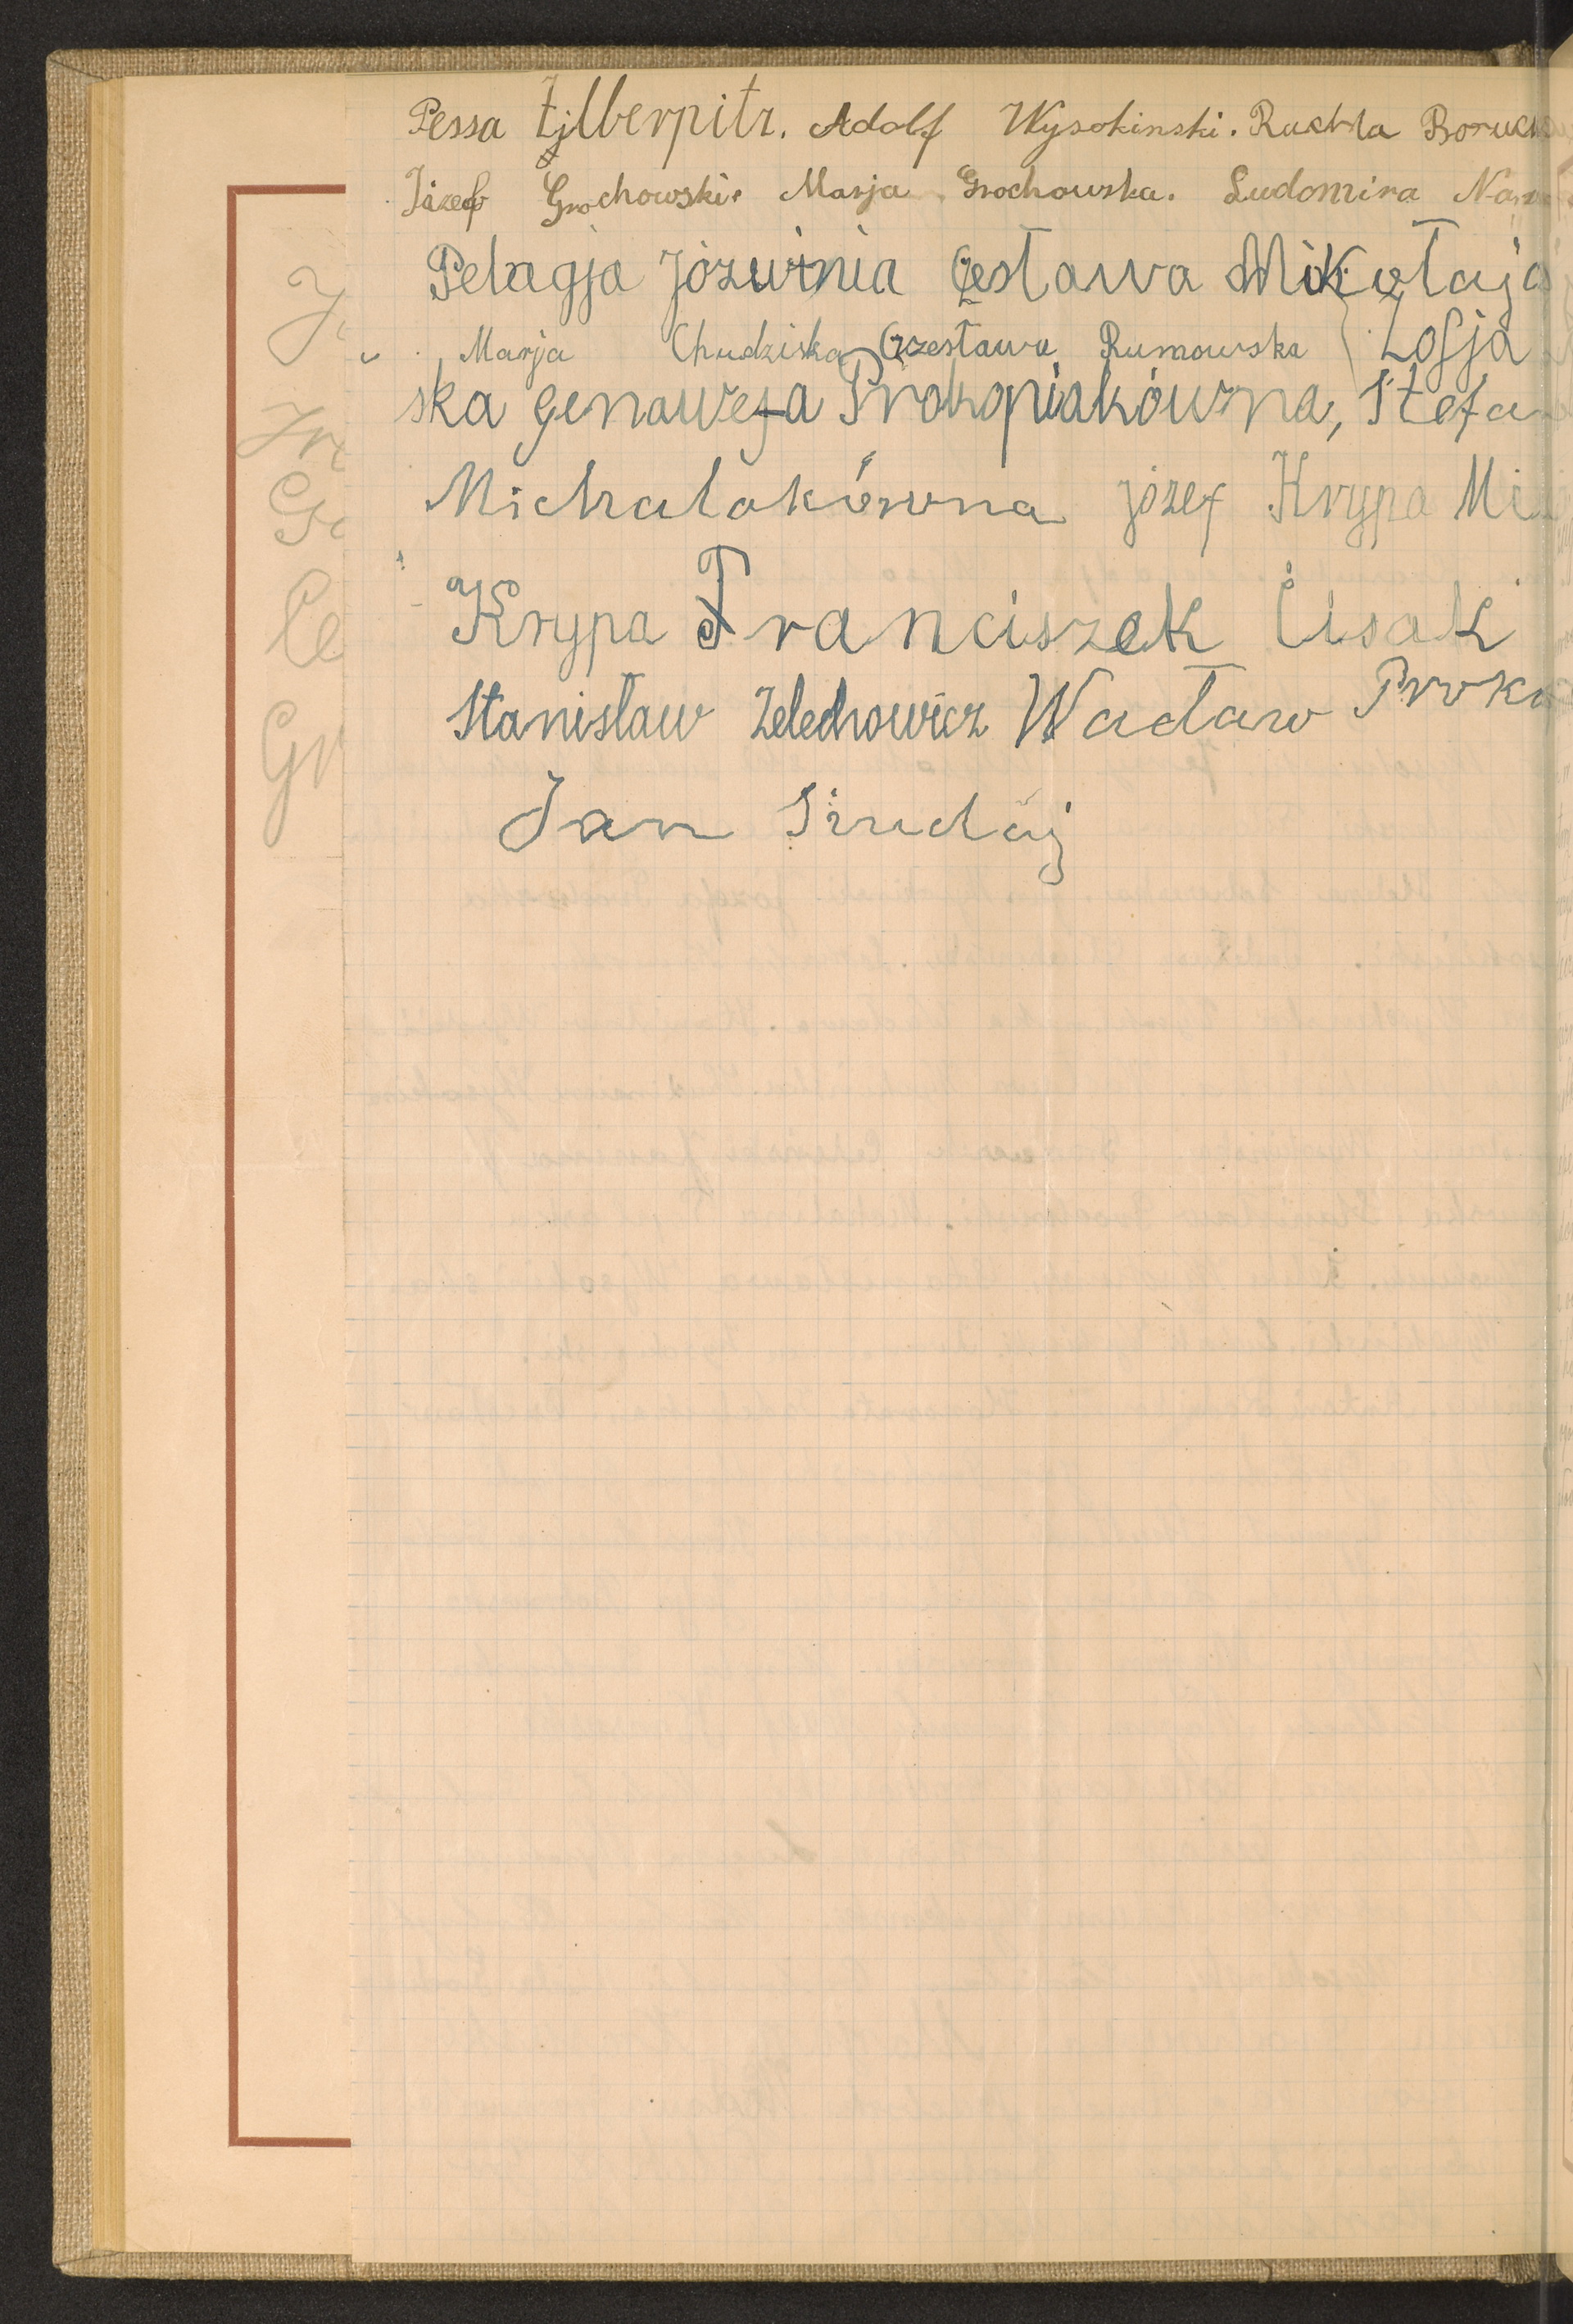 Pessa Adolf Wysokinski. Ruchla Boruch
Józef Grochowski. Marja Grochowska. Ludomira
Pelagja Józwinia Częstawa Mikołaja
Marja Chudziska Czestawa Rumowska Zofja
ska genawefa Prokopiakówna, Stefa
Michalakówna józef Krypa Mi
Krypa Franciszek Cisak
Stanisław Zelechowicz Wacław Proko
Jan Siudaj